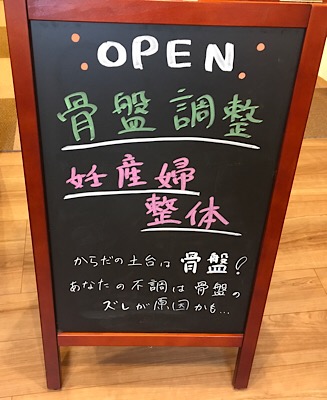 OPEN
骨盤調整
妊産婦
整体
からだの土台は 骨盤!
あなたの不調は骨盤の
ズレが原因かも...